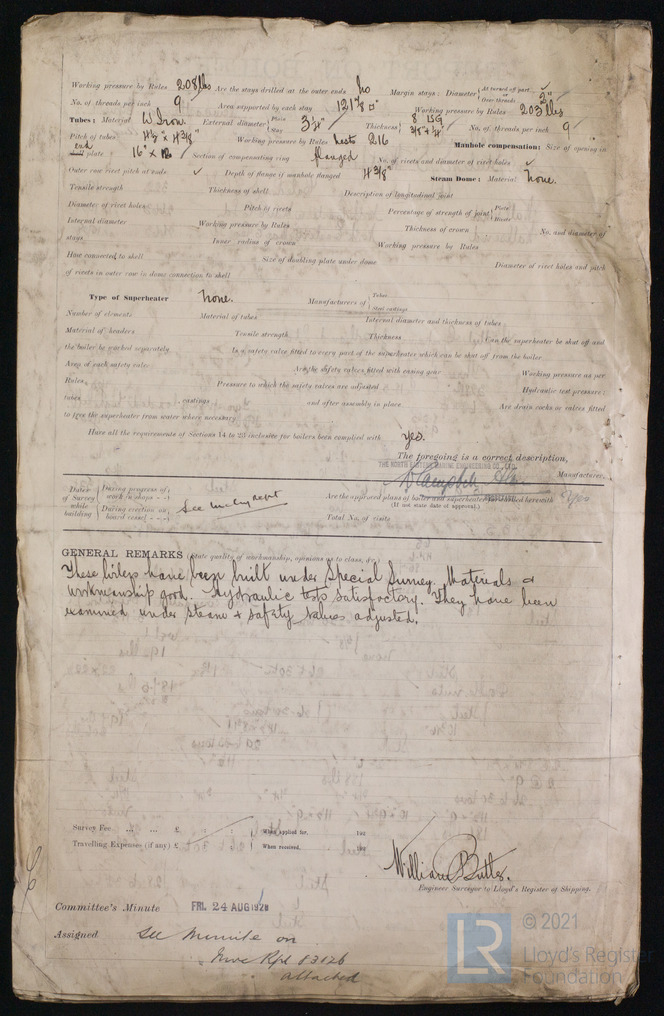 Working pressure by Rules 208 lbs Are the stays drilled at the outer ends No Margin stays: Diameter { At turned off part or Over threads 2"
No. of threads per inch 9 Area supported by each stay Working pressure by Rules 203 lbs
Tubes: Material W Iron External diameter { Plain Stay 3¼" Thickness { 8 LSG No. of threads per inch 9
Pitch of tubes 4½" x 4⅜" Working pressure by Rules 216 Manhole compensation: Size of opening in
end plate 16" x 12" Section of compensating ring flanged No. of rivets and diameter of rivet holes
Outer row rivet pitch at ends Depth of flange if manhole flanged 4⅜" Steam Dome: Material None.
Tensile strength Thickness of shell Description of longitudinal joint
Diameter of rivet holes Pitch of rivets Percentage of strength of joint { Plate Rivets
Internal diameter Working pressure by Rules Thickness of crown No. and diameter of
stays Inner radius of crown Working pressure by Rules
How connected to shell Size of doubling plate under dome Diameter of rivet holes and pitch
of rivets in outer row in dome connection to shell
Type of Superheater None. Manufacturers of { Tubes Steel castings
Number of elements Material of tubes Internal diameter and thickness of tubes
Material of headers Tensile strength Thickness Can the superheater be shut off and
the boiler be worked separately Is a safety valve fitted to every part of the superheater which can be shut off from the boiler
Area of each safety valve Are the safety valves fitted with easing gear Working pressure as per
Rules Pressure to which the safety valves are adjusted Hydraulic test pressure:
tubes castings and after assembly in place Are drain cocks or valves fitted
to free the superheater from water where necessary
Have all the requirements of Sections 14 to 23 inclusive for boilers been complied with Yes.
The foregoing is a correct description,
THE NORTH EASTERN MARINE ENGINEERING CO., LTD.
Manufacturer.
Dates of Survey while building { During progress of work in shops - - During erection on board vessel - - - See Mchy Rept Are the approved plans of boiler and superheater forwarded herewith Yes
(If not state date of approval.)
Total No. of visits
GENERAL REMARKS (State quality of workmanship, opinions as to class, &c.)
These boilers have been built under Special Survey. Materials &
workmanship good. Hydraulic tests satisfactory. They have been
examined under steam & safety valves adjusted.
Survey Fee ... ... £ : : When applied for, 192
Travelling Expenses (if any) £ : : When received, 192
William Butler.
Engineer Surveyor to Lloyd's Register of Shipping.
Committee's Minute FRI. 24 AUG 1928
Assigned See Minute on
Nwc Rpt 83126
attached
© 2021
LR Lloyd's Register
Foundation